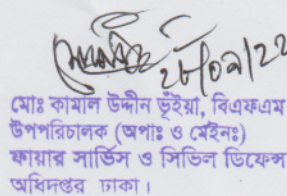 ২৮/০৯/২২
মোঃ কামাল উদ্দীন ভূঁইয়া, বিএফএম
উপপরিচালক (অপাঃ ও মেইনঃ)
ফায়ার সার্ভিস ও সিভিল ডিফেন্স
অধিদপ্তর ঢাকা।